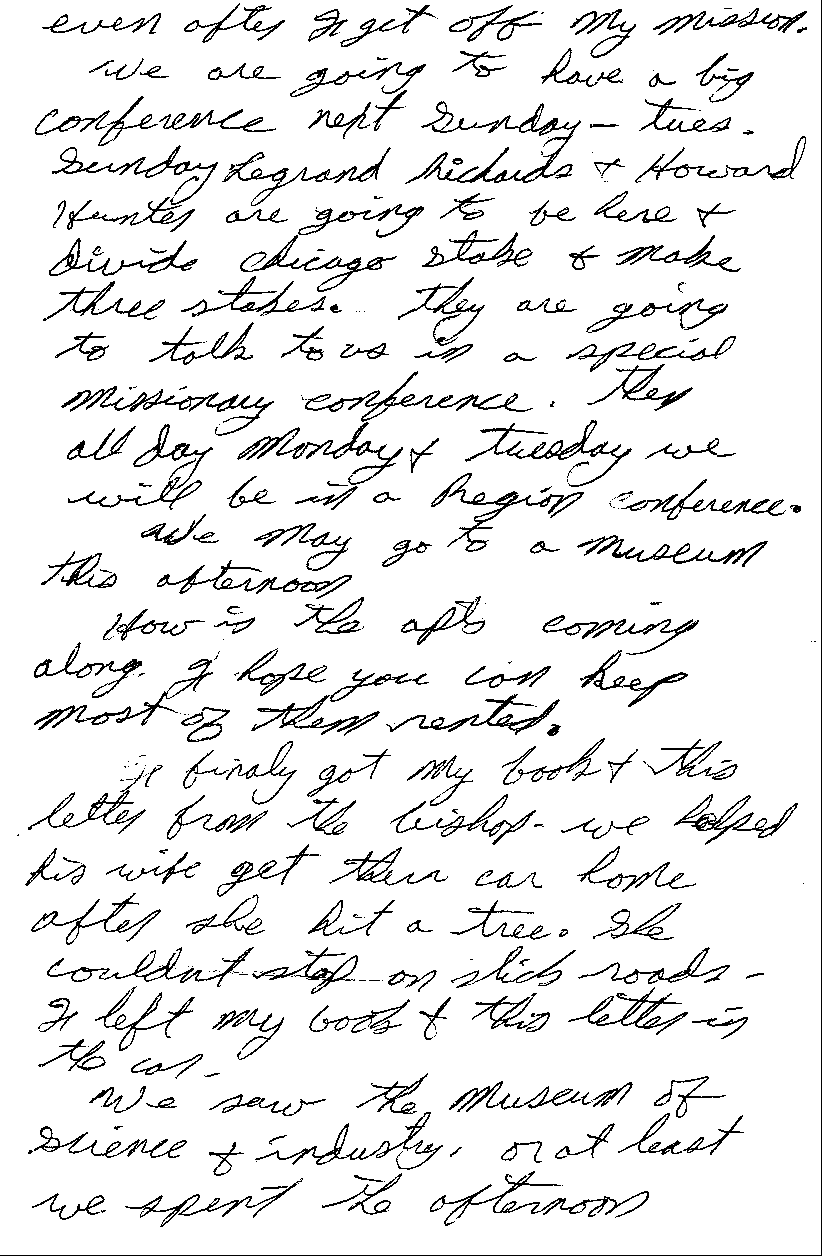 even after I get off my mission.
We are going to have a big
conference next Sunday - Tues.
Sunday Legrand Richards & Howard
Hunter are going to be here &
divide chicago stake & make
three stakes. They are going
to talk to us in a special
missionary conference. Then
all day Monday & Tuesday we
will be in a Region conference.
We may go to a museum
this afternoon
How is the apts coming
along. I hope you can keep
most of them rented.
I finaly got my book & this
letter from the bishop - we helped
his wife get their car home
after she hit a tree. She
couldnt stop on slick roads -
I left my book & this letter in
the car -
We saw the museum of
Science & industry, or at least
we spent the afternoon